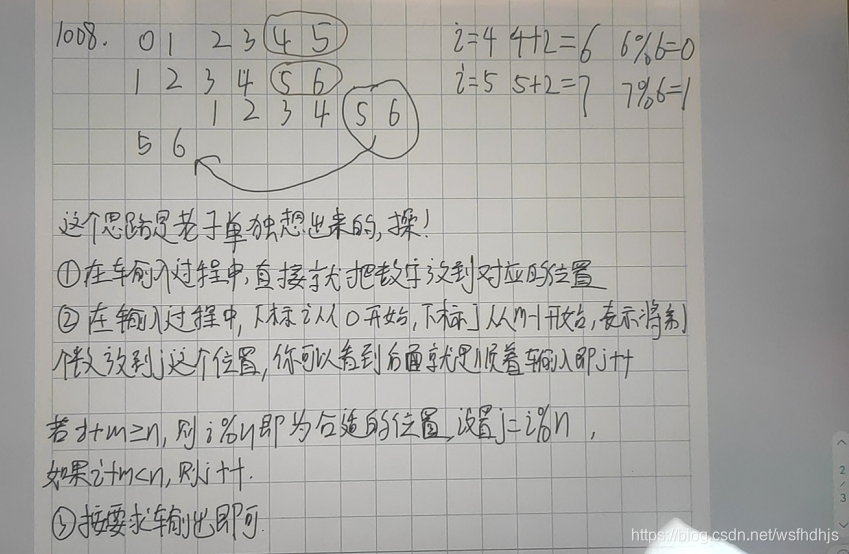 1008. 0 1 2 3 4 5 i=4 4+2=6 6%6=0
1 2 3 4 5 6 i=5 5+2=7 7%6=1
1 2 3 4 5 6
5 6
这个思路是老子单独想出来的,操!
①在车俞入过程中,直接就把数字放到对应的位置
②在输入过程中,下标i从0开始,下标j从m-1开始,表示将第j
个数放到j这个位置,你可以看到后面就是顺着输入即j++
若i+m≥n,则i%n即为合适的位置,设置j=i%n,
如果i+m<n,则j++.
③按要求输出即可.
2
/
3
https://blog.csdn.net/wsfhdhjs